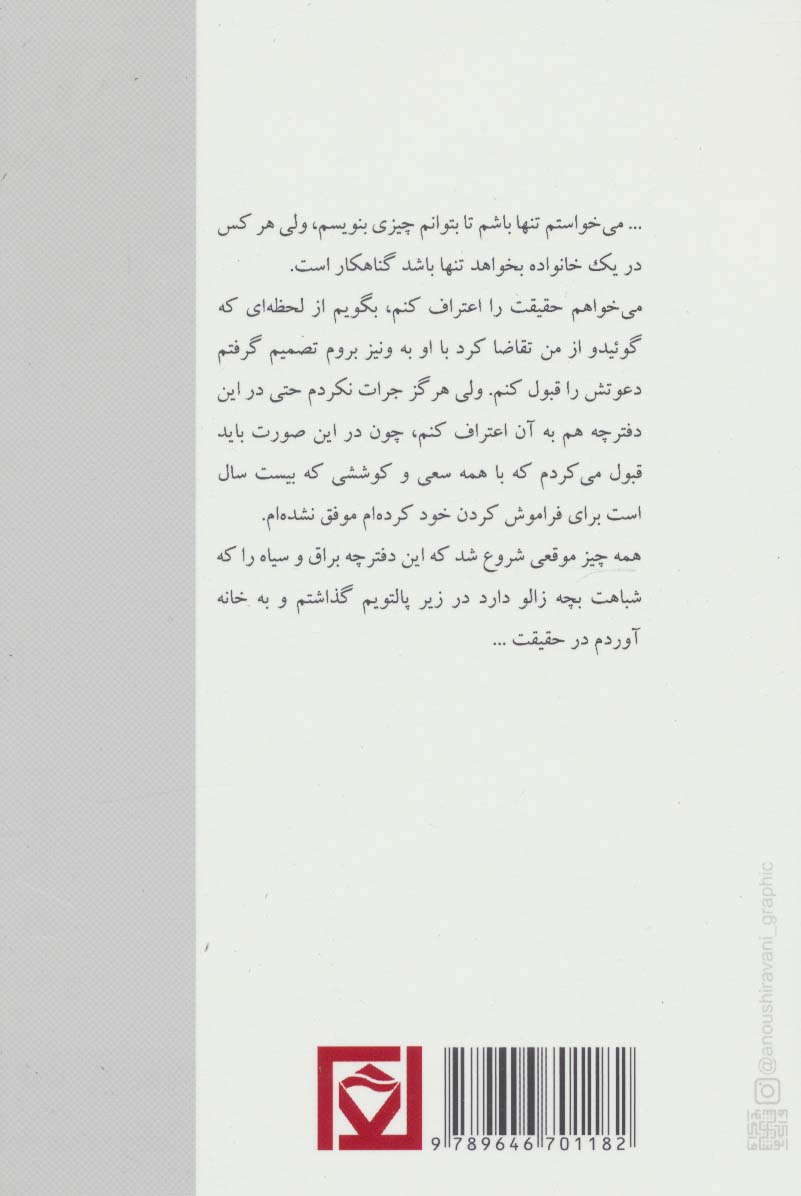 ... می‌خواستم تنها باشم تا بتوانم چیزی بنویسم، ولی هر کس
در یک خانواده بخواهد تنها باشد گناهکار است.
می‌خواهم حقیقت را اعتراف کنم، بگویم از لحظه‌ای که
گوئیدو از من تقاضا کرد با او به ونیز بروم تصمیم گرفتم
دعوتش را قبول کنم. ولی هرگز جرات نکردم حتی در این
دفترچه هم به آن اعتراف کنم، چون در این صورت باید
قبول می‌کردم که با همه سعی و کوششی که بیست سال
است برای فراموش کردن خود کرده‌ام موفق نشده‌ام.
همه چیز موقعی شروع شد که این دفترچه براق و سیاه را که
شباهت بچه زالو دارد در زیر پالتویم گذاشتم و به خانه
آوردم در حقیقت ...
@anoushiravani_graphic
9 789646 701182